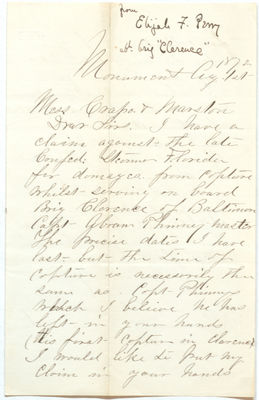 from
Elijah F. Perry
"Brig "Clarence"
1872
Monument Aug 1st
Mess Crapo & Marston
Dear Sirs. I have a
claim against the late
Confed. Steamer Florider
for domages from Copture
whilst serving on board
Brig Clarence of Baltimore
Capt Abram Phinney master
The precise date I have
lost but the time of
Copture is necessarily the
same as Capt Phinneys
which I believe he has
left in your hands
(His first Copture in Clarence)
I would like to put my
Claim in your hands